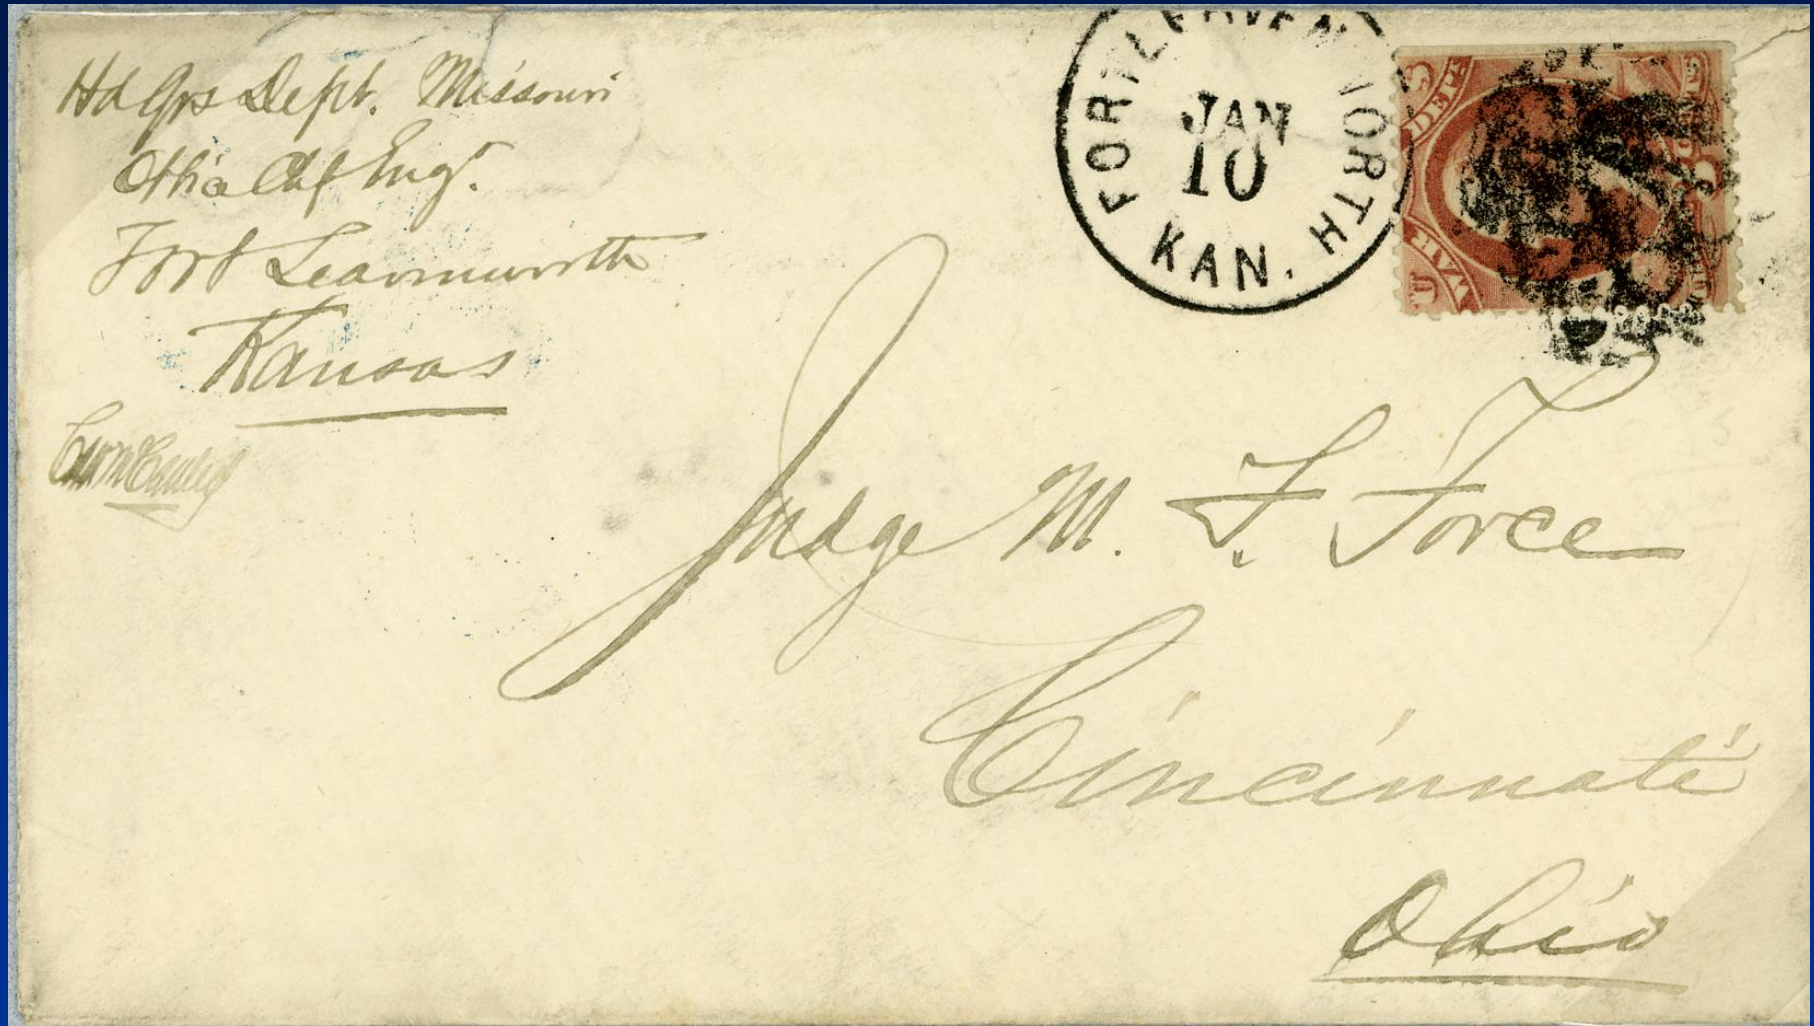 Hd Qrs Dept. Missouri
Office Chf Engr.
Fort Leavenworth
Kansas
FORT LEAVENWORTH
JAN
10
KAN.
DEPT
WAR
U
Judge M. F. Force
Cincinnati
Ohio